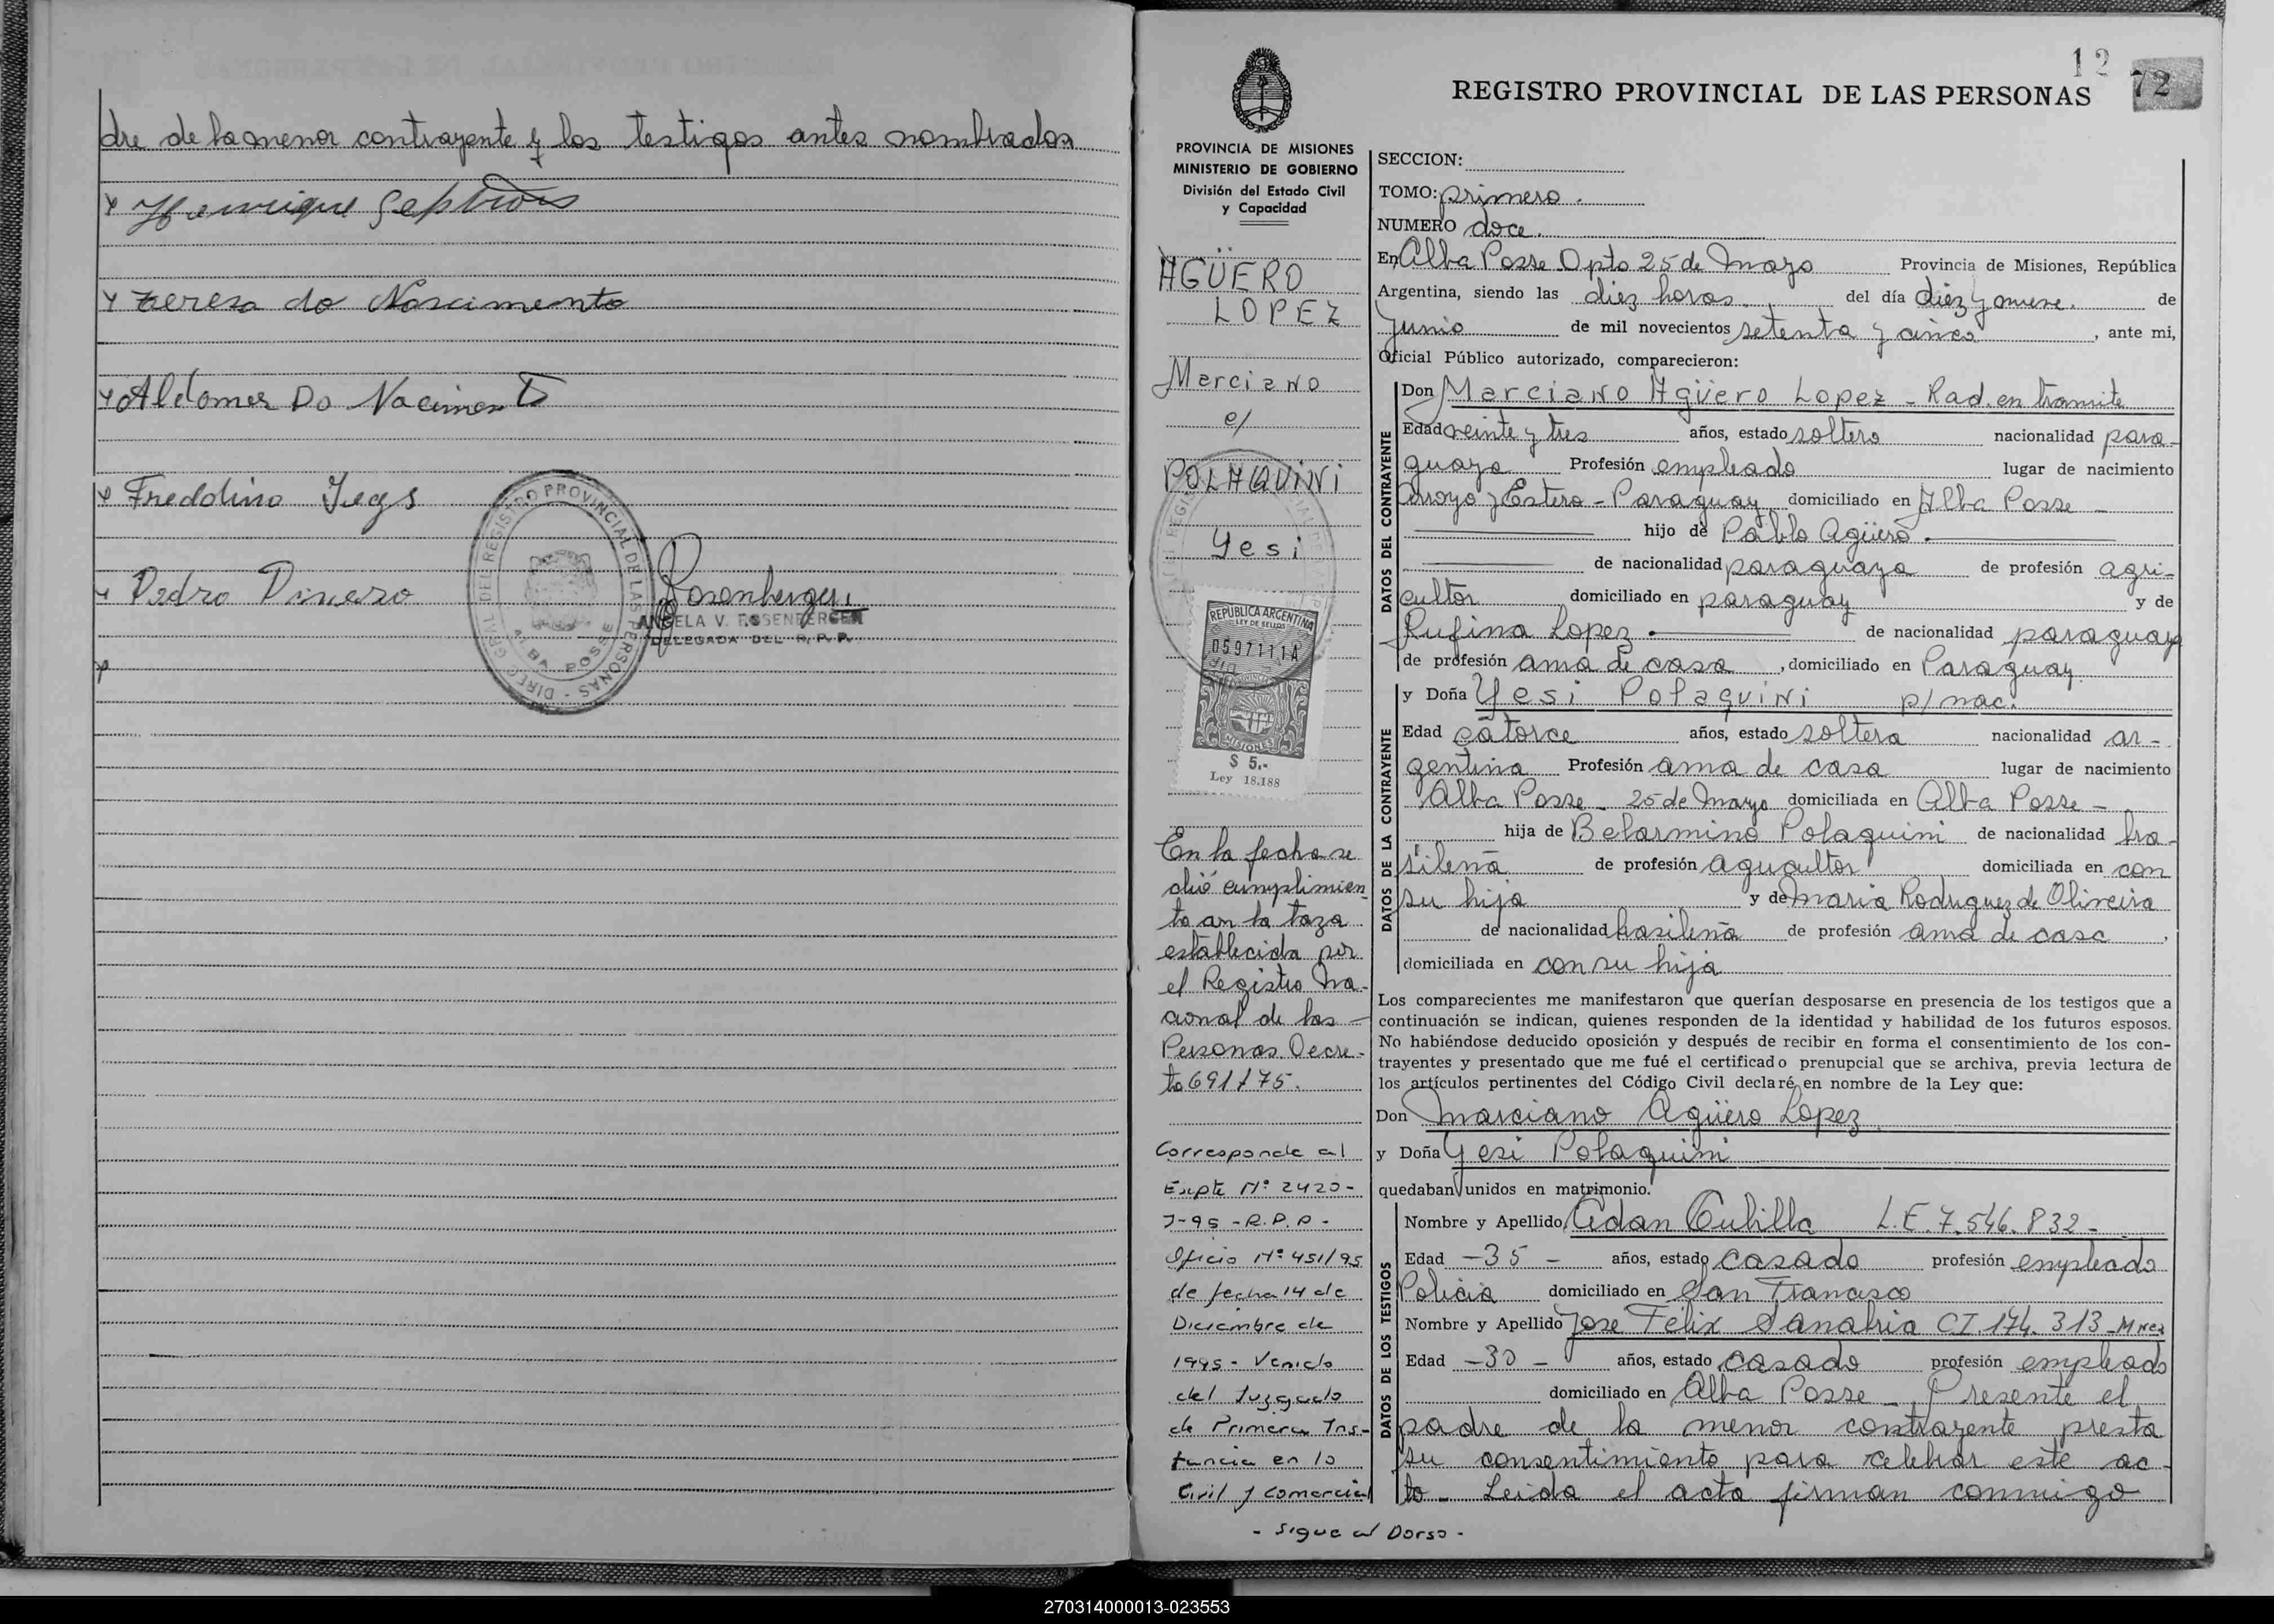 dre de la menor contrayente y los testigos antes nombrados
Henrique
Tereza do Nascimento
Aldomer Do Naciment
Freddino
Pedro
Rosenberger
ANGELA V. ROSENBERGER
DELEGADA DEL R. P. P.
DIREC. GRAL. DEL REGISTRO PROVINCIAL DE LAS PERSONAS
ALBA POSSE
12
72
REGISTRO PROVINCIAL DE LAS PERSONAS
PROVINCIA DE MISIONES
MINISTERIO DE GOBIERNO
División del Estado Civil
y Capacidad
AGÜERO
LOPEZ
Marciano
c/
POLAQUINI
Yesi
REPUBLICA ARGENTINA
LEY DE SELLOS
0597111A
MISIONES
$ 5.-
Ley 18.188
En la fecha se
dió cumplimien
to an la taza
establecida por
el Registro Na-
cional de las
Personas Decre-
to 691/75.
Corresponde al
Expte Nº 2420-
J-95 - R.P.P -
Oficio Nº 451/95
de fecha 14 de
Diciembre de
1995 - Venido
del Juzgado
de Primera Ins-
tancia en lo
Civil y Comercial
- Sigue al Dorso -
SECCION:
TOMO: primero.
NUMERO doce.
En Alba Posse Dpto 25 de Mayo Provincia de Misiones, República
Argentina, siendo las diez horas. del día diez y nueve. de
Junio de mil novecientos setenta y cinco, ante mi,
Oficial Público autorizado, comparecieron:
DATOS DEL CONTRAYENTE
Don Marciano Agüero Lopez - Rad. en tramite
Edad veinte y tres años, estado soltero nacionalidad para-
guaya Profesión empleado lugar de nacimiento
Arroyo y Estero - Paraguay domiciliado en Alba Posse -
hijo de Pablo Agüero.
de nacionalidad paraguaya de profesión agri-
cultor domiciliado en paraguay y de
Rufina Lopez de nacionalidad paraguaya
de profesión ama de casa, domiciliado en Paraguay
DATOS DE LA CONTRAYENTE
y Doña Yesi Polaquini p/nac.
Edad catorce años, estado soltera nacionalidad ar-
gentina Profesión ama de casa lugar de nacimiento
Alba Posse - 25 de Mayo domiciliada en Alba Posse -
hija de Belarmino Polaquini de nacionalidad bra-
sileña de profesión agricultor domiciliada en con
su hija y de Maria Rodriguez de Oliveira
de nacionalidad brasileña de profesión ama de casa,
domiciliada en con su hija
Los comparecientes me manifestaron que querían desposarse en presencia de los testigos que a
continuación se indican, quienes responden de la identidad y habilidad de los futuros esposos.
No habiéndose deducido oposición y después de recibir en forma el consentimiento de los con-
trayentes y presentado que me fué el certificado prenupcial que se archiva, previa lectura de
los artículos pertinentes del Código Civil declaré, en nombre de la Ley que:
Don Marciano Agüero Lopez
y Doña Yesi Polaquini
quedaban unidos en matrimonio.
DATOS DE LOS TESTIGOS
Nombre y Apellido Adan Cubilla L.E. 7.546.832-
Edad -35- años, estado casado profesión empleado
Policia domiciliado en San Francisco
Nombre y Apellido Jose Felix Sanabria CI. 174.313-Mnes
Edad -30- años, estado casado profesión empleado
domiciliado en Alba Posse - Presente el
padre de la menor contrayente presta
su consentimiento para celebrar este ac-
to - Leida el acta firman conmigo
270314000013-023553